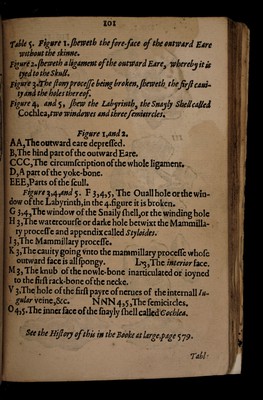 101
Table 5. Figure 1. sheweth the fore-face of the outward Eare
without the skinne.
Figure 2. sheweth a ligament of the outward Eare, whereby it is
tyed to the Skull.
Figure 3. The stony processe being broken, sheweth the first caui-
ty and the holes thereof.
Figure 4, and 5, shew the Labyrinth, the Snayly Shell called
Cochlea, two windowes and three semicircles.
Figure 1, and 2.
AA, The outward eare depressed.
B, The hind part of the outward Eare.
CCC, The circumscription of the whole ligament.
D, A part of the yoke-bone.
EEE, Parts of the scull.
Figure 3,4, and 5. F 3,4,5, The Ouall hole or the win-
dow of the Labyrinth, in the 4. figure it is broken.
G 3,4, The window of the Snayly shell, or the winding hole
H 3, The watercourse or darke hole betwixt the Mammilla-
ry processe and appendix called Styloides.
I 3, The Mammillary processe.
K 3, The cauity going into the mammillary processe whose
outward face is all spongy. L 3, The interior face.
M 3, The knub of the nowle-bone inarticulated or ioyned
to the first rack-bone of the necke.
V 3, The hole of the first payre of nerues of the internall Iu-
gular veine, &c. NNN 4,5, The semicircles.
O 4,5, The inner face of the snayly shell called Cochlea.
See the History of this in the Booke at large. page 579.
Tabl-